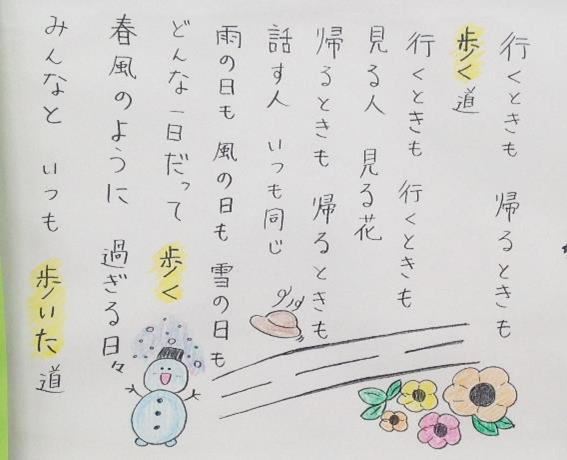 行くときも 帰るときも
歩く道
行くときも 行くときも
見る人 見る花
帰るときも 帰るときも
話す人 いつも同じ
雨の日も 風の日も 雪の日も
どんな一日だって 歩く
春風のように 過ぎる日々
みんなと いつも 歩いた道